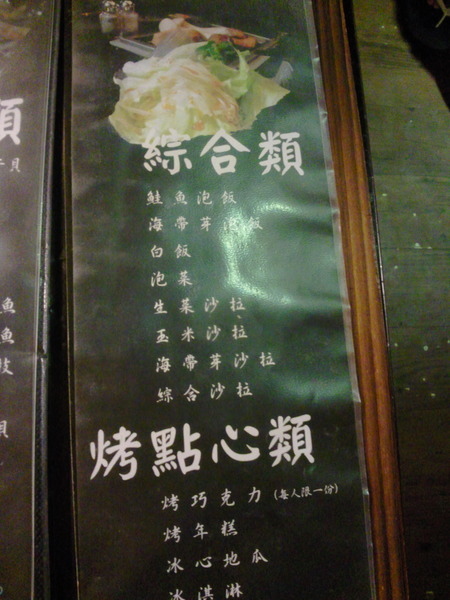 類
干貝
魚
魚
貝
綜合類
鮭魚泡飯
海帶芽泡飯
白飯
泡菜
生菜沙拉
玉米沙拉
海帶芽沙拉
綜合沙拉
烤點心類
烤巧克力(每人限一份)
烤年糕
冰心地瓜
冰淇淋